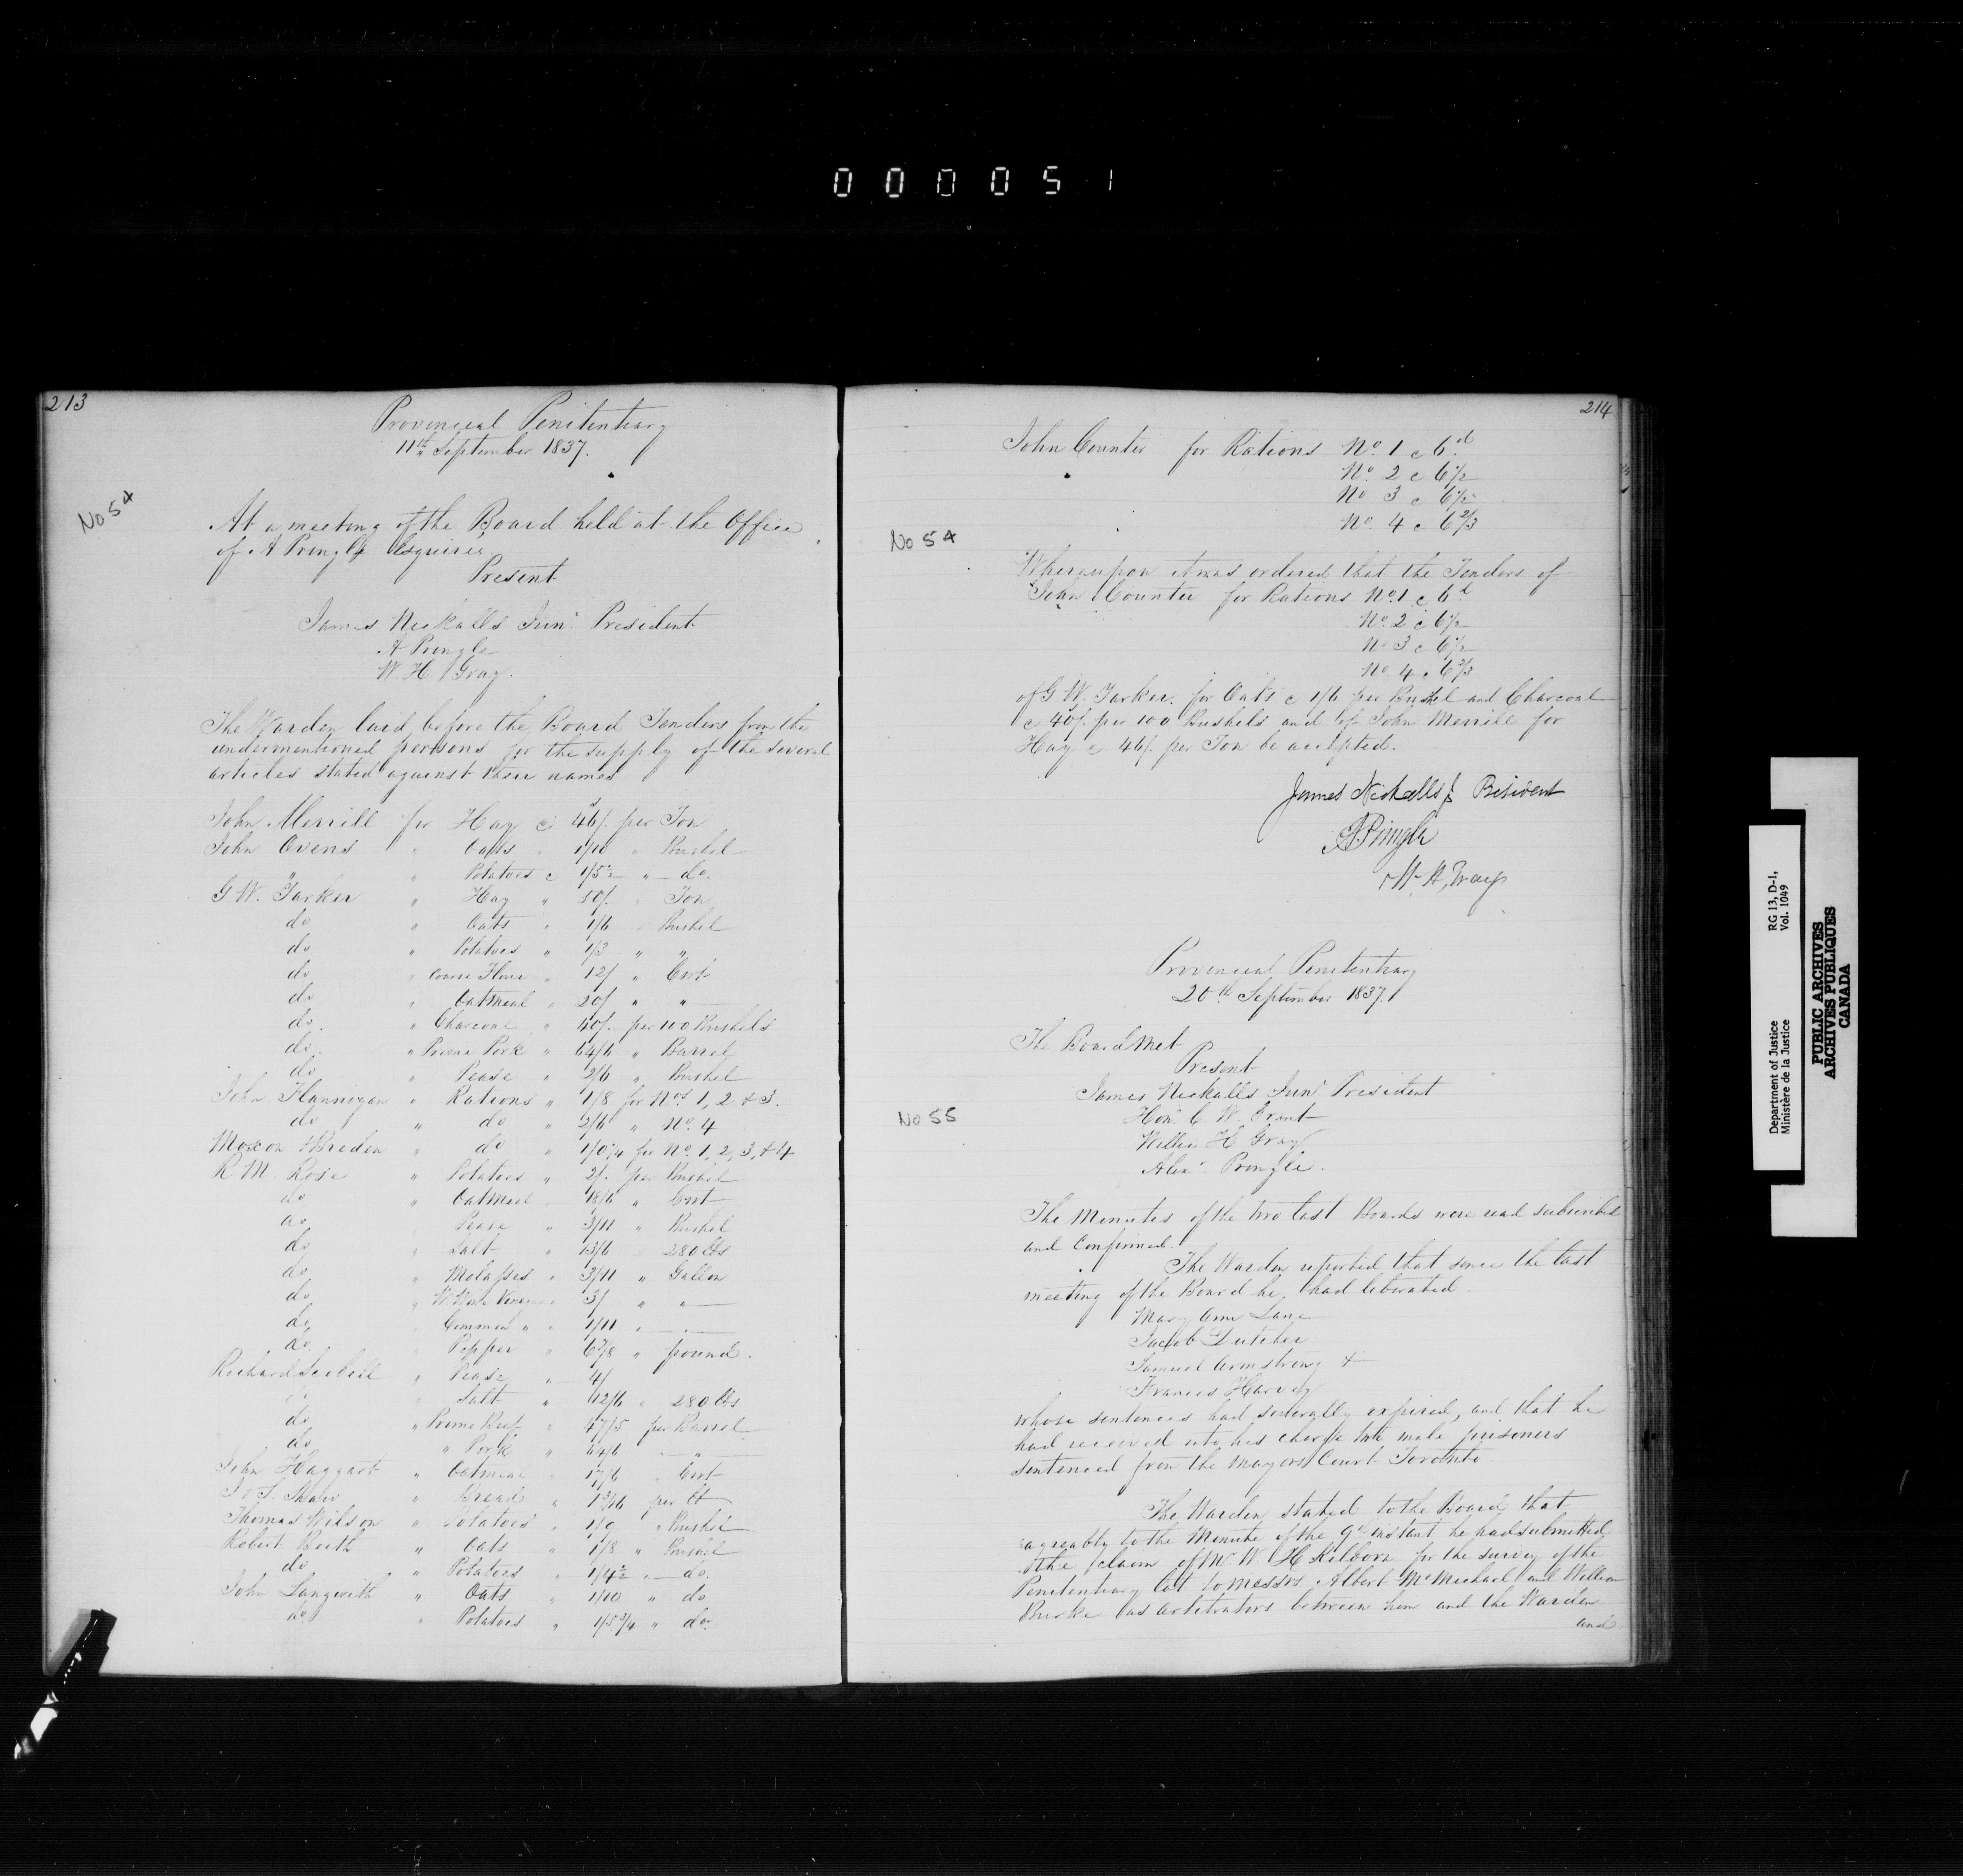 000051
213
Provincial Penitentiary
11th September 1837.
No 54
At a meeting of the Board held at the Office
of A Pringle Esquire
Present
James Nickalls Junr President
A Pringle
W. H. Gray.
The Warden laid before the Board Tenders from the
undermentioned persons for the supply of the several
articles stated against their names
John Merrill for Hay @ 46/. per Ton
John Ovens " Oats " 1/10 " Bushel
" " Potatoes @ 1/5½ " do.
G W. Yarker " Hay " 50/. " Ton
do " Oats " 1/6 " Bushel
do " Potatoes " 1/3 " "
do " Coarse Flour " 12/ " Cwt
do " Oatmeal " 20/ " "
do. " Charcoal " 40/. per 100 Bushels
do. " Prime Pork " 64/6 " Barrel
do " Pease " 2/6 " Bushel
John Flannigan " Rations " 1/8 for Nos 1, 2 & 3.
do " do " 2/6 " No. 4
Moxon & Breden " do " 1/0¼ for No. 1, 2, 3, & 4
R M. Rose " Potatoes " 2/. per Bushel
do " Oatmeal " 18/6 " Cwt
do " Pease " 3/11 " Bushel
do " Salt " 13/6 280 lbs
do " Molasses " 3/11 " Gallon
do " W. Wine Vinegar " 3/ " "
do " Common " " 1/11 " "
do. " Pepper " 6⅞ " pound.
Richard Scobell " Pease " 4/
" Salt " 12/6 " 280 lbs
do " Prime Beef " 47/5 per Barrel
do " " Pork " 64/6 " "
John Haggart " Oatmeal " 17/6 " Cwt
J & S. Shaw " Bread " per lb
Thomas Wilson " Potatoes " 1/9 " Bushel
Robert Beith " Oats " 1/8 " Bushel
do " Potatoes " 1/4½ " do.
John Langwith " Oats " 1/10 " do
do " Potatoes " 1/5¾ " do.
214
John Counter for Rations No. 1 @ 6d
No. 2 @ 6½
No 3 @ 6½
No. 4 @ 6⅔
No 54
Whereupon it was ordered that the Tenders of
John Counter for Rations No. 1 @ 6d
No. 2 @ 6½
No 3 @ 6½
No. 4 @ 6⅔
of G W. Yarker. for Oats @ 1/6 per Bushel and Charcoal
@ 40/. per 100 Bushels and of John Merrill for
Hay @ 46/. per Ton be accepted.
James Nickalls Jr President
A Pringle
W. H. Gray
Provincial Penitentiary
20th September 1837.
The Board Met
Present
James Nickalls Junr President
No 55
Hon. C W. Grant
William H Gray
Alexr Pringle.
The Minutes of the two last Boards were read subscribed
and Confirmed.
The Warden reported that since the last
meeting of the Board he had liberated
Mary Ann Lane
Jacob Dutcher
Samuel Armstrong &
Frances Harvey
whose sentences had severally expired, and that he
had received into his charge two male prisoners
sentenced from the Mayors Court Toronto.
The Warden stated to the Board that
agreeably to the Minute of the 9th instant he had submitted
the claim of Mr. W. H Kilborn for the survey of the
Penitentiary lot to Messrs Albert McMichael and William
Burke as arbitrators between him and the Warden
and
Department of Justice
Ministère de la Justice
RG 13, D-1,
Vol. 1049
PUBLIC ARCHIVES
ARCHIVES PUBLIQUES
CANADA